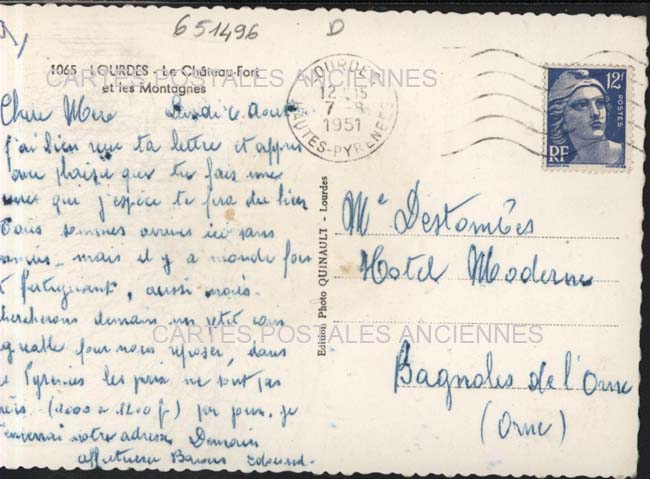 651496 D
1065 - LOURDES - Le Château-Fort
et les Montagnes
CARTES POSTALES ANCIENNES
LOURDES
12 15
7 - 8
1951
HAUTES-PYRENEES
12F
POSTES
RF
Chère Mère Lundi 6 Août
J'ai bien reçu ta lettre et appris
avec plaisir que tu fais une
cure que j'espère te fera du bien
Nous sommes arrivés ici sans
mais il y a monde fou
et fatiguant, aussi nous
chercherons demain un petit coin
agréable pour nous reposer, dans
les Pyrénées les prix ne sont pas
(1000 a 1200 f) par jour, je
notre adresse Demain
affectueux Baisers Edouard.
Edition Photo QUINAULT - Lourdes
Me Destombes
Hotel Moderne
CARTES POSTALES ANCIENNES
Bagnoles de l'Orne
(Orne)